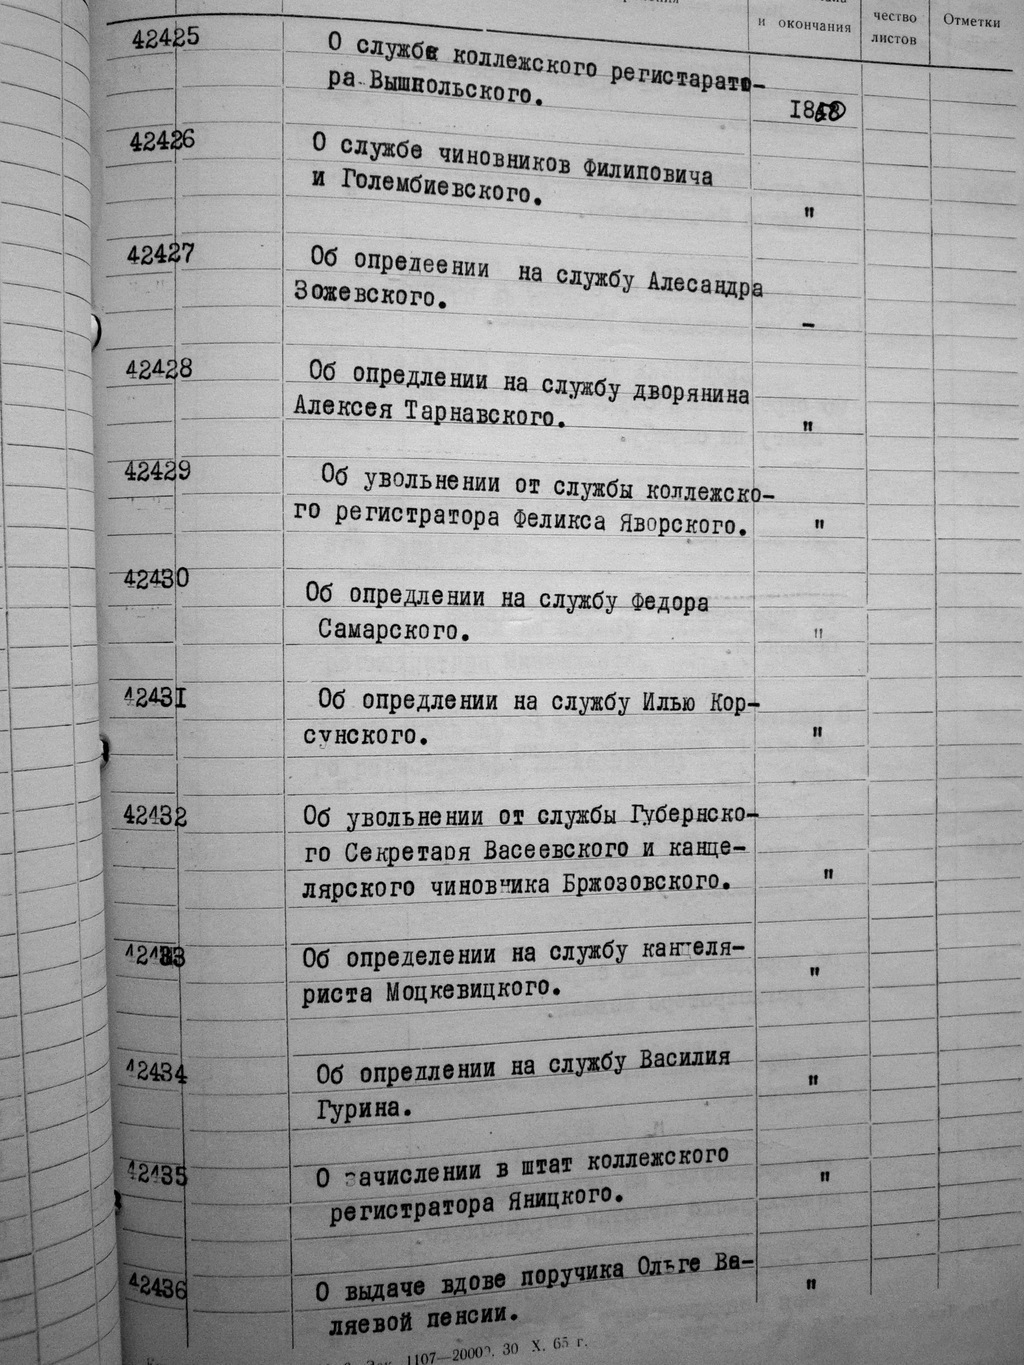 и окончания
чество
листов
Отметки
42425
О службе коллежского регистарато-
ра Вышкольского.
42426
О службе чиновников Филиповича
и Голембиевского.
"
42427
Об опредеении на службу Алесандра
Зожевского.
-
42428
Об опредлении на службу дворянина
Алексея Тарнавского.
"
42429
Об увольнении от службы коллежско-
го регистратора Феликса Яворского.
"
42430
Об опредлении на службу Федора
Самарского.
"
42431
Об опредлении на службу Илью Кор-
сунского.
"
42432
Об увольнении от службы Губернско-
го Секретаря Васеевского и канце-
лярского чиновника Бржозовского.
"
42433
Об определении на службу канцеля-
риста Моцкевицкого.
"
42434
Об опредлении на службу Василия
Гурина.
"
42435
О зачислении в штат коллежского
регистратора Яницкого.
"
42436
О выдаче вдове поручика Ольге Ва-
ляевой пенсии.
"
1107—20000. 30 X. 65 г.